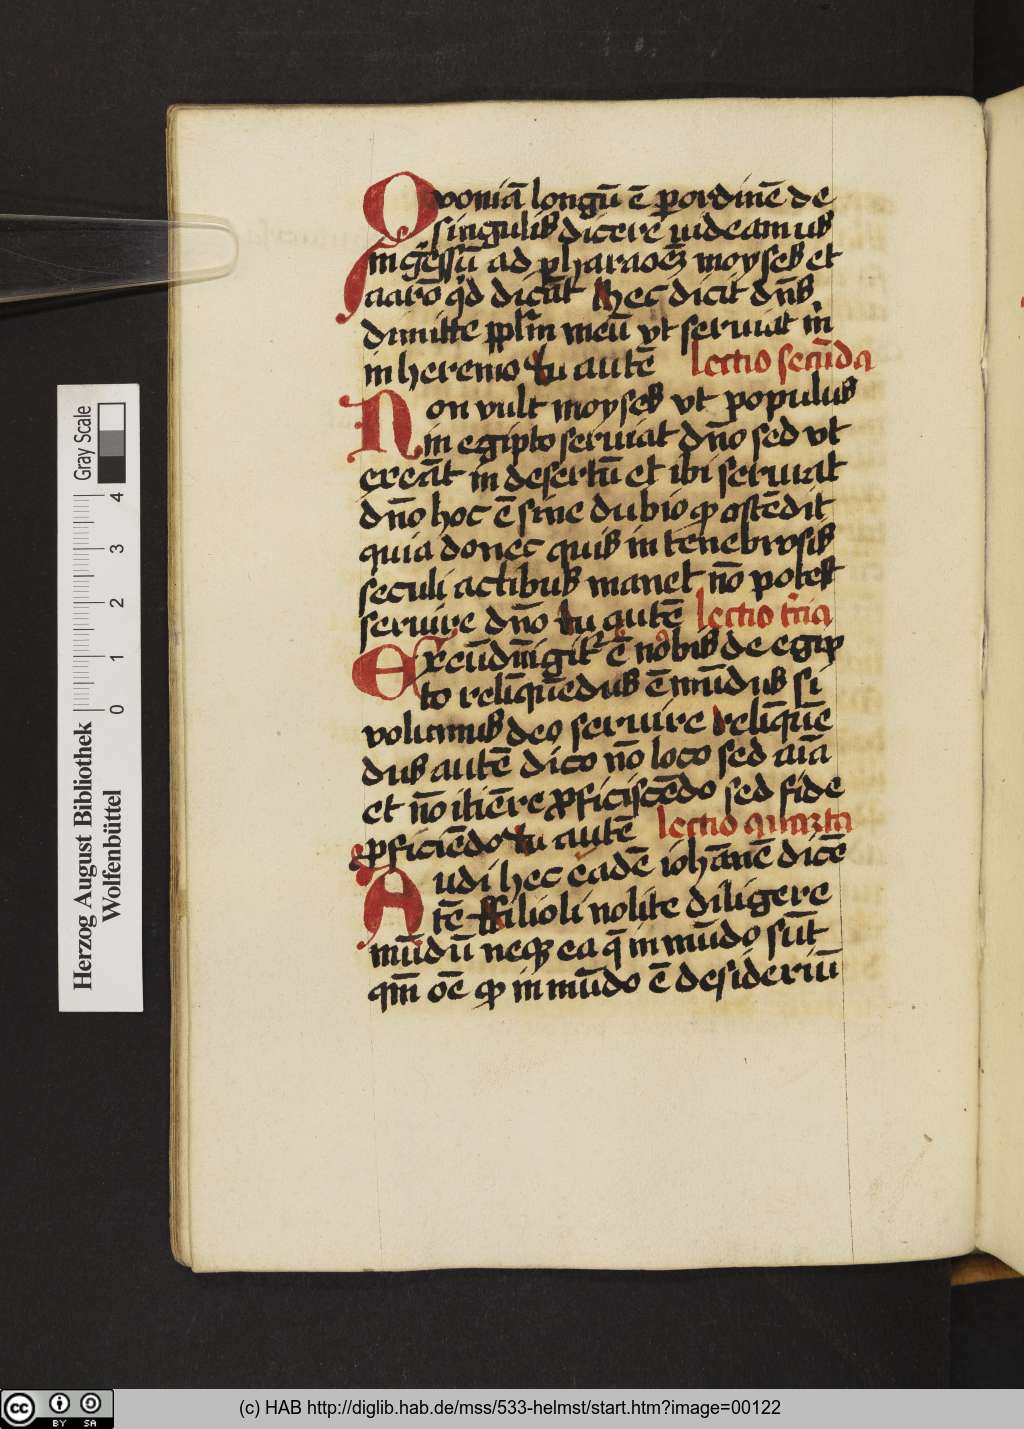 Quoniā longū ē p ordinē de
singulis dicere uideamus
ingressū ad pharaonē moyses et
aarō qd dicūt Hec dicit dn̄s
dimitte pplm̄ meū vt seruiat m̄
in heremo tu autē lectio secūda
Non vult moyses vt populus
in egipto seruiat dn̄o sed vt
exeāt in desertū et ibi seruiat
dn̄o hoc ē sine dubio qͥ ostēdit
quia donec quis in tenebrosis
seculi actibus manet nō potest
seruire dn̄o tu autē lectio tr̄cia
Exeūdū igitr̄ ē nobis de egip
to relīquēdus ē mūdus si
volumus deo seruire relīquē
dus autē dico nō loco sed aīa
et nō itiēre ꝓficiscēdo sed fide
ꝓficiēdo tu autē lectio quarta
Audi hec eadē iohānē dicē
tē ffilioli nolite diligere
mūdū neqꝫ ea q̄ in mūdo sūt
qm̄ oē qͥ in mūdo ē desideriū
Herzog August Bibliothek
Wolfenbüttel
0 1 2 3 4
Gray Scale
cc BY SA
(c) HAB http://diglib.hab.de/mss/533-helmst/start.htm?image=00122